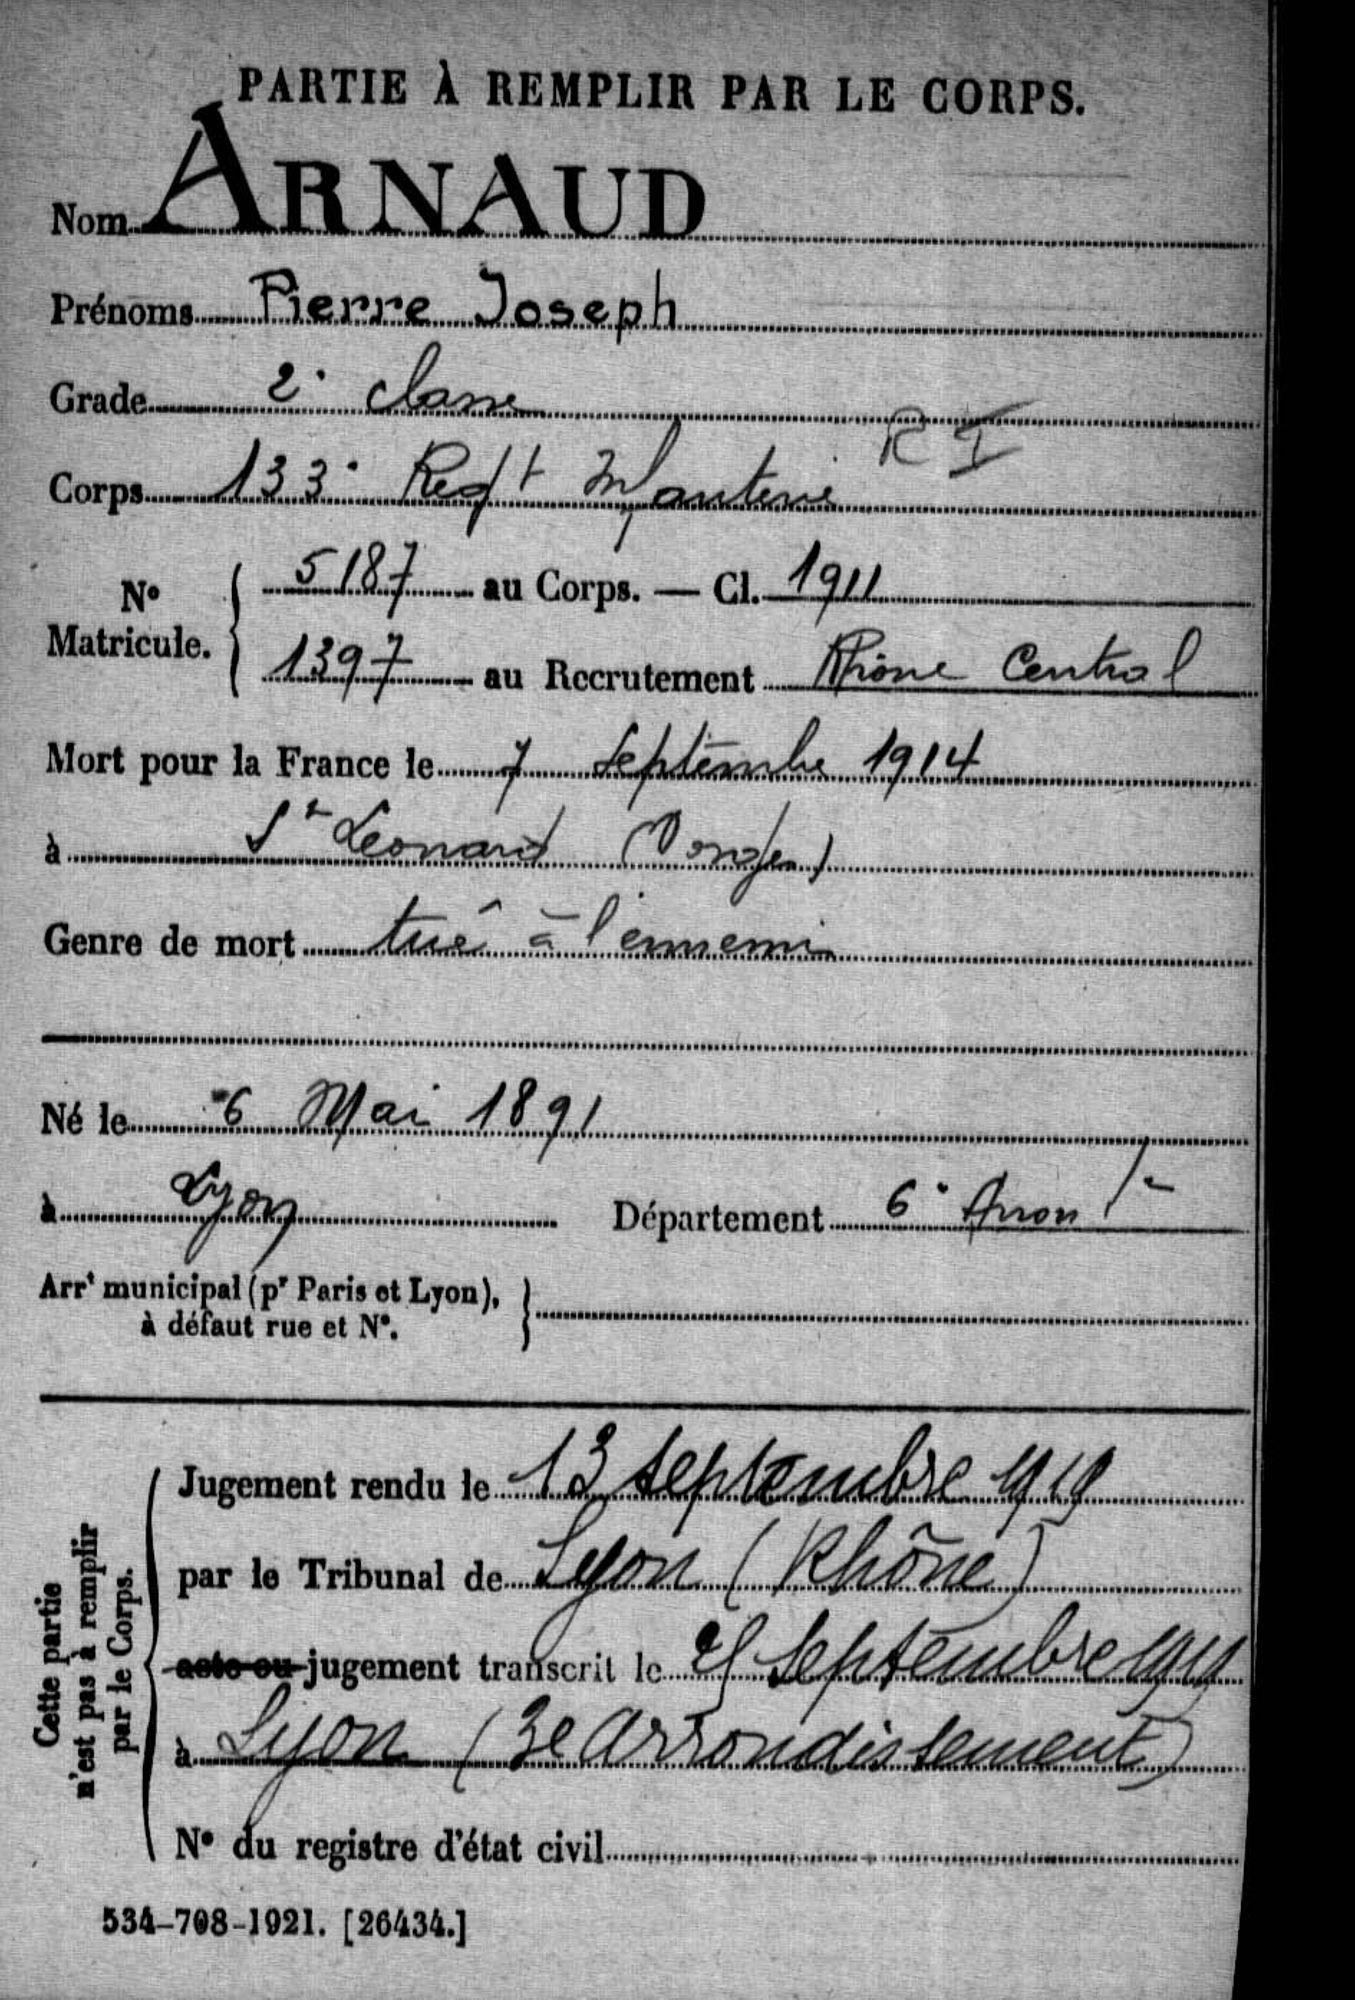 PARTIE À REMPLIR PAR LE CORPS.
Nom ARNAUD
Prénoms Pierre Joseph
Grade 2e classe
R I
Corps 133e Regt Infanterie
No Matricule. { 5187 au Corps. — Cl. 1911
1397 au Recrutement Rhône Central
Mort pour la France le 7 Septembre 1914
à St Leonard (Vosges)
Genre de mort tué à l'ennemi
Né le 6 Mai 1891
à Lyon Département 6e Arront
Arrt municipal (pr Paris et Lyon), à défaut rue et No. }
Cette partie n'est pas à remplir par le Corps.
Jugement rendu le 13 septembre 1919
par le Tribunal de Lyon (Rhône)
acte ou jugement transcrit le Septembre 1919
à Lyon (3e arrondissement)
No du registre d'état civil
534-708-1921. [26434.]